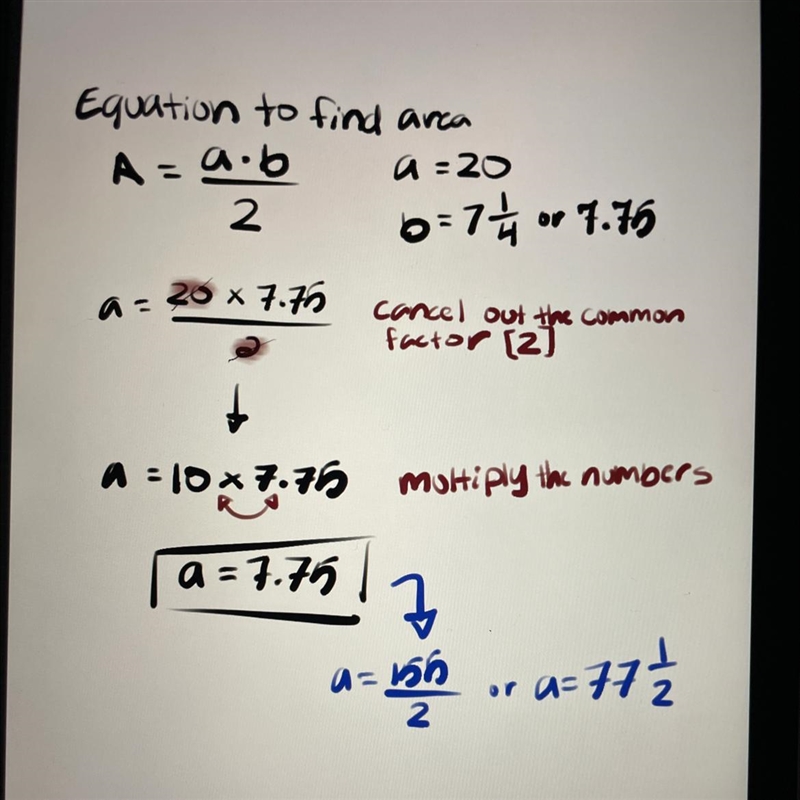 Equation to find area
A = a·b / 2
a = 20
b = 7 1/4 or 7.75
a = 20 × 7.75 / 2
cancel out the common
factor [2]
↓
a = 10 × 7.75
multiply the numbers
a = 7.75
a = 155/2 or a = 77 1/2